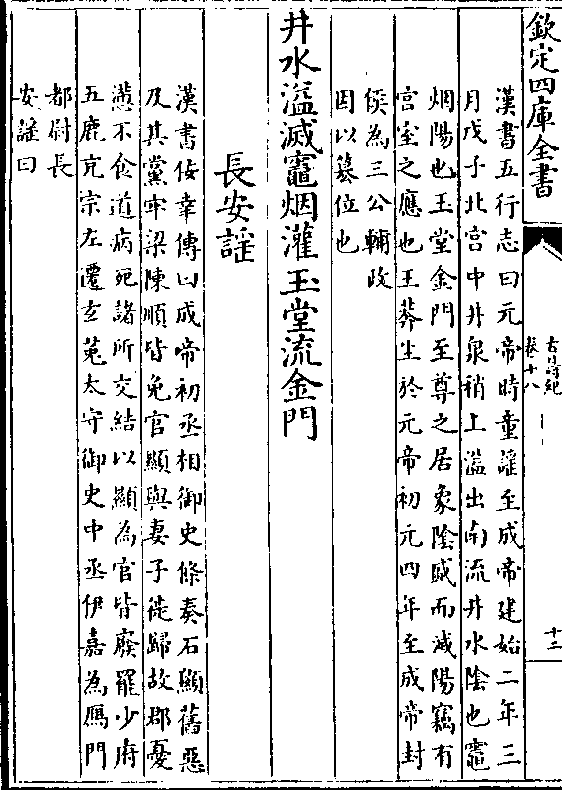 欽定四庫全書
古詩紀
卷十八
十二
漢書五行志曰元帝時童謡至成帝建始二年三
月戊子北宮中井泉稍上溢出南流井水隂也竈
烟陽也玉堂金門至尊之居象隂盛而滅陽竊有
宮室之應也王莽生於元帝初元四年至成帝封
侯為三公輔政
因以簒位也
井水溢滅竈烟灌玉堂流金門
長安謡
漢書佞幸傳曰成帝初丞相御史條奏石顯舊惡
及其黨牢梁陳順皆免官顯與妻子徙歸故郡憂
懣不食道病死諸所交結以顯為官皆廢罷少府
五鹿充宗左遷𤣥菟太守御史中丞伊嘉為鴈門
都尉長
安謡曰